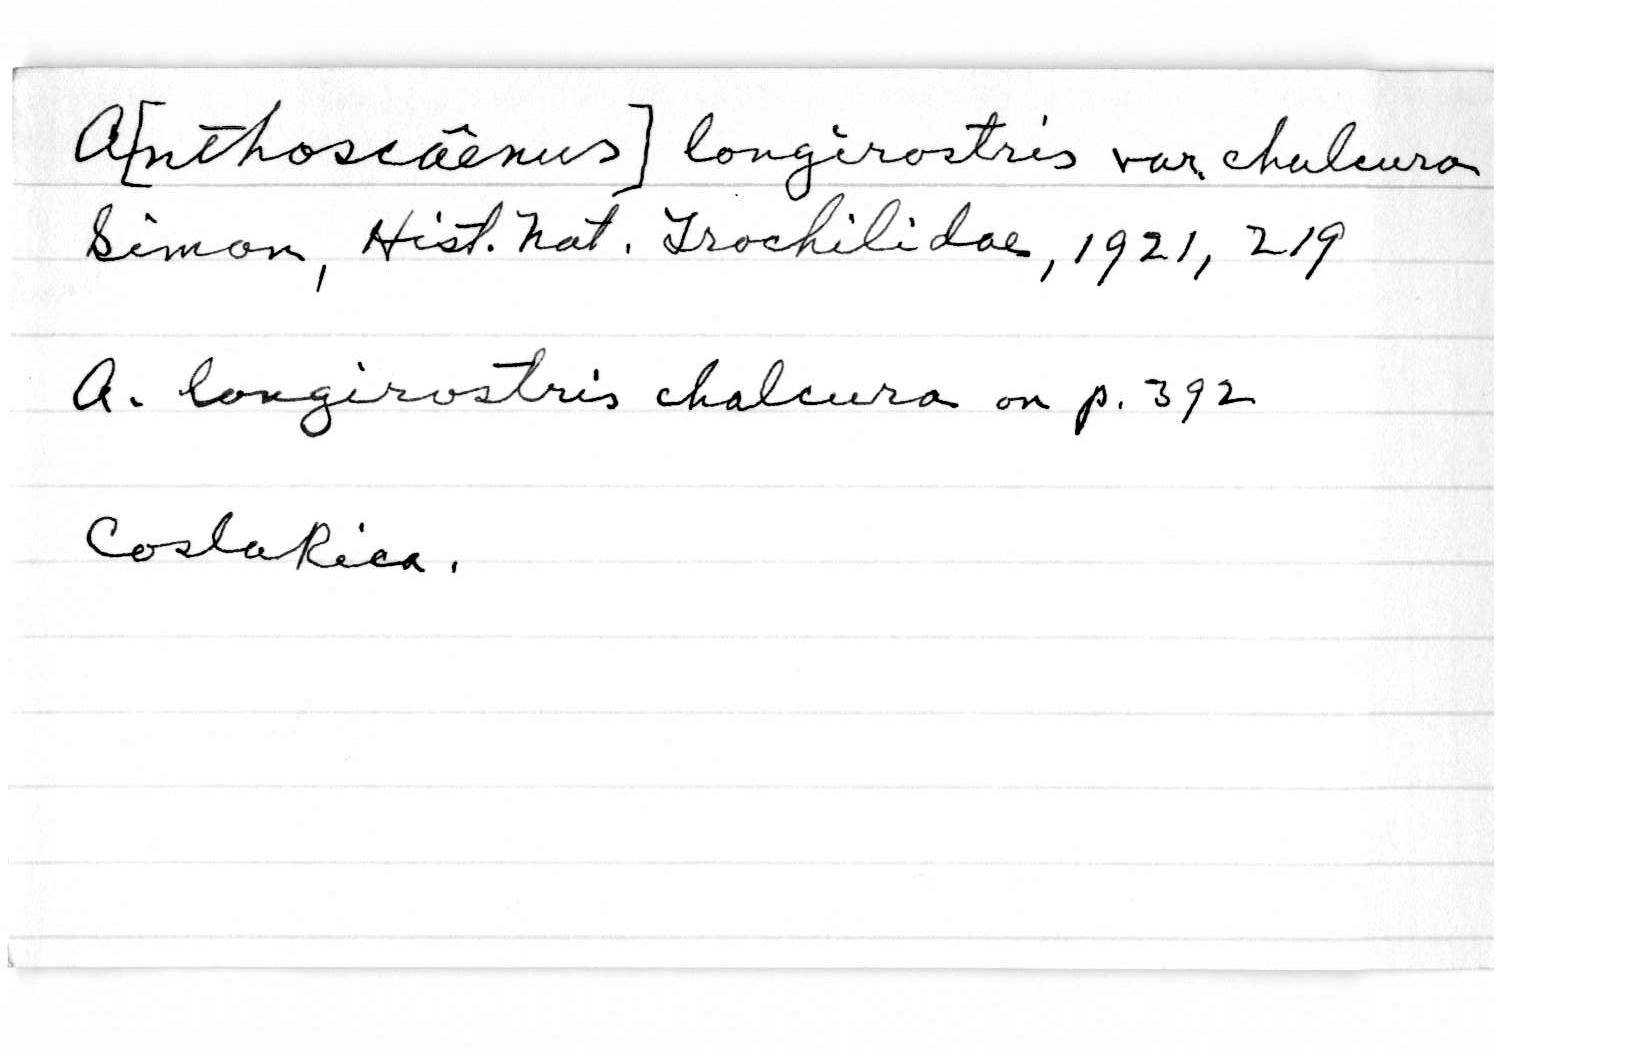 A[nthoscäenus] longirostris var. chalcura
Simon, Hist. Nat. Trochilidae, 1921, 219
A. longirostris chalcura on p. 392
Costa Rica.